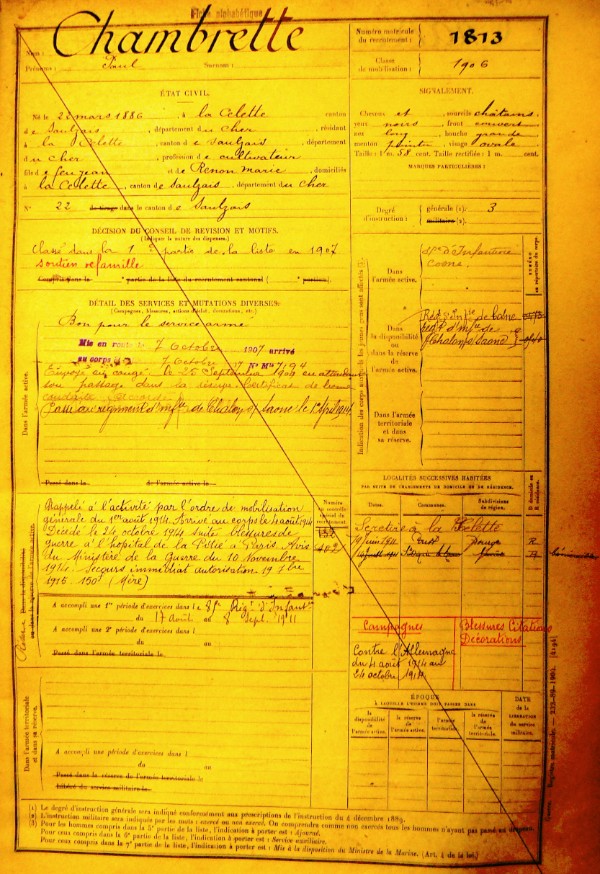 Fiche alphabétique
Nom : Chambrette
Prénoms : Paul Surnoms :
Numéro matricule du recrutement : 1813
Classe de mobilisation : 1906
ÉTAT CIVIL.
Né le mars 1886, à la Celette canton
de Saulzais, département du Cher, résidant
à la Celette, canton de Saulzais, département
du Cher, profession de cultivateur
fils de feu Jean et de Renon Marie, domiciliés
à la Celette, canton de Saulzais, département du Cher
N° 22 de tirage dans le canton de Saulzais
SIGNALEMENT.
Cheveux et sourcils châtains
yeux noirs, front couvert
nez long, bouche grande
menton pointu, visage ovale
Taille : 1 m. 58 cent. Taille rectifiée : 1 m. cent.
MARQUES PARTICULIÈRES :
Degré d'instruction : générale (1). 3
militaire (2).
DÉCISION DU CONSEIL DE RÉVISION ET MOTIFS.
(Indiquer la nature des dispenses.)
Classé dans la 1re partie de la liste en 1907
soutien de famille
Compris dans la partie de la liste du recrutement cantonal ( portion).
DÉTAIL DES SERVICES ET MUTATIONS DIVERSES
(Campagnes, blessures, actions d'éclat, décorations, etc.)
Bon pour le service armé
Mis en route le 7 Octobre 1907 arrivé
au corps le Octobre
Envoyé en congé le 25 Septembre en attendant
son passage dans la réserve. Certificat de bonne
conduite accordé
Passé au régiment d'Inf de Châlon s/ Saône le 1er Avril 1914
Passé dans le de l'armée active le
Dans l'armée active.
Indication des corps auxquels les jeunes gens sont affectés
NUMÉRO au répertoire du corps.
Dans l'armée active.
d'Infanterie
Cosne
Dans la disponibilité ou dans la réserve de l'armée active.
de Cosne
Regt d'Inf de
Châlon s/ Saône
Dans l'armée territoriale et dans sa réserve.
LOCALITÉS SUCCESSIVES HABITÉES
PAR SUITE DE CHANGEMENTS DE DOMICILE OU DE RÉSIDENCE.
Dates. Communes. Subdivisions de région. D. domicile ou R. résidence.
Se retire à la Celette
Juin 1911 Bourges R
Rappelé à l'activité par l'ordre de mobilisation
générale du 1er août 1914. Arrivé au corps le 4 août 1914
Décédé le 24 octobre 1914 suite blessures de
guerre à l'hôpital de la Pitié à Paris. Avis
du Ministère de la Guerre du 10 Novembre
1914. Secours immédiat autorisation 19 7bre
1916. 150f (Mère)
Numéro au contrôle spécial du recrutement.
A accompli une 1re période d'exercices dans le 85e Régt d'Infant
du 17 août au 8 Sept. 1911
A accompli une 2e période d'exercices dans l
du au
Passé dans l'armée territoriale le
Campagnes
Contre l'Allemagne
du 4 août 1914 au
24 octobre 1914
Blessures Citations
Décorations
ÉPOQUE
À LAQUELLE L'HOMME DOIT PASSER DANS
la disponibilité de l'armée active. la réserve de l'armée active. l'armée territoriale. la réserve de l'armée territoriale.
DATE de la LIBÉRATION du service militaire.
Dans l'armée territoriale et dans sa réserve.
A accompli une période d'exercices dans l
du au
Passé dans la réserve de l'armée territoriale le
Libéré du service militaire le
(1) Le degré d'instruction générale sera indiqué conformément aux prescriptions de l'instruction du 4 décembre 1889.
(2) L'instruction militaire sera indiquée par les mots : exercé ou non exercé. On comprendra comme non exercés tous les hommes n'ayant pas passé au drapeau.
(3) Pour les hommes compris dans la 5e partie de la liste, l'indication à porter est : Ajourné.
Pour ceux compris dans la 6e partie de la liste, l'indication à porter est : Service auxiliaire.
Pour ceux compris dans la 7e partie de la liste, l'indication à porter est : Mis à la disposition du Ministre de la Marine. (Art. 4 de la loi.)